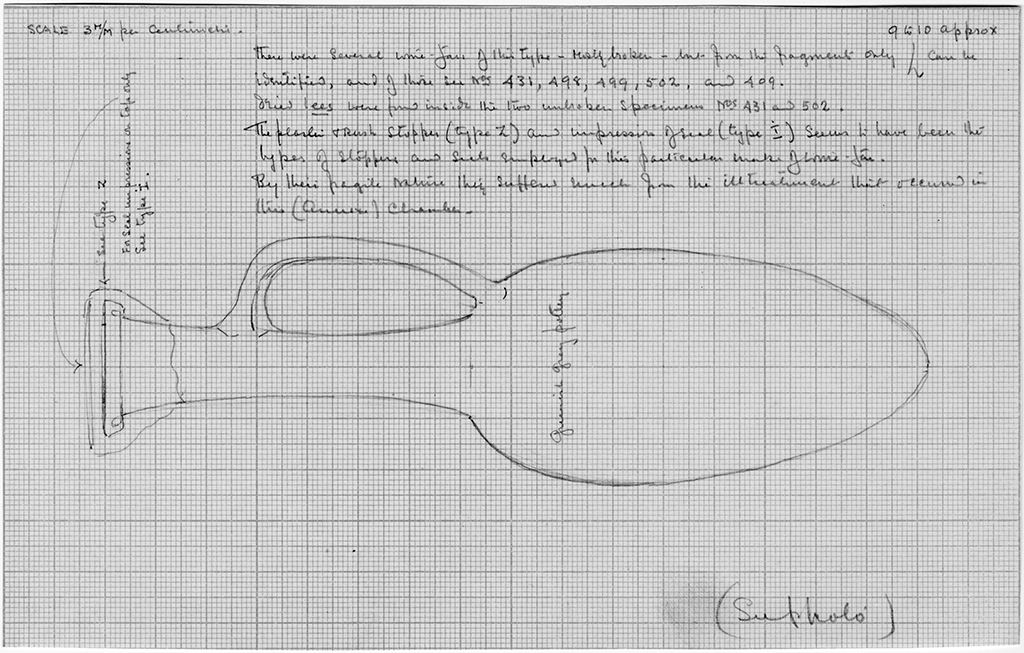 SCALE 3 M/M per Centimetre.
9 to 10 approx
There were several wine-jars of this type - mostly broken - but from the fragments only / can be
identified, and of those see Nos 431, 498, 499, 502, and 409.
Dried lees were found inside the two unbroken specimens Nos 431 and 502.
The plaster & rush stopper (type Z) and impression of seal (type I) seems to have been the
types of stoppers and seals employed for this particular make of wine-jar.
By their fragile nature they suffered much from the illtreatment that occurred in
this (Annexe) Chamber.
See type Z
For seal impressions on top only
See type I.
Greenish Grey pottery
(See photo)